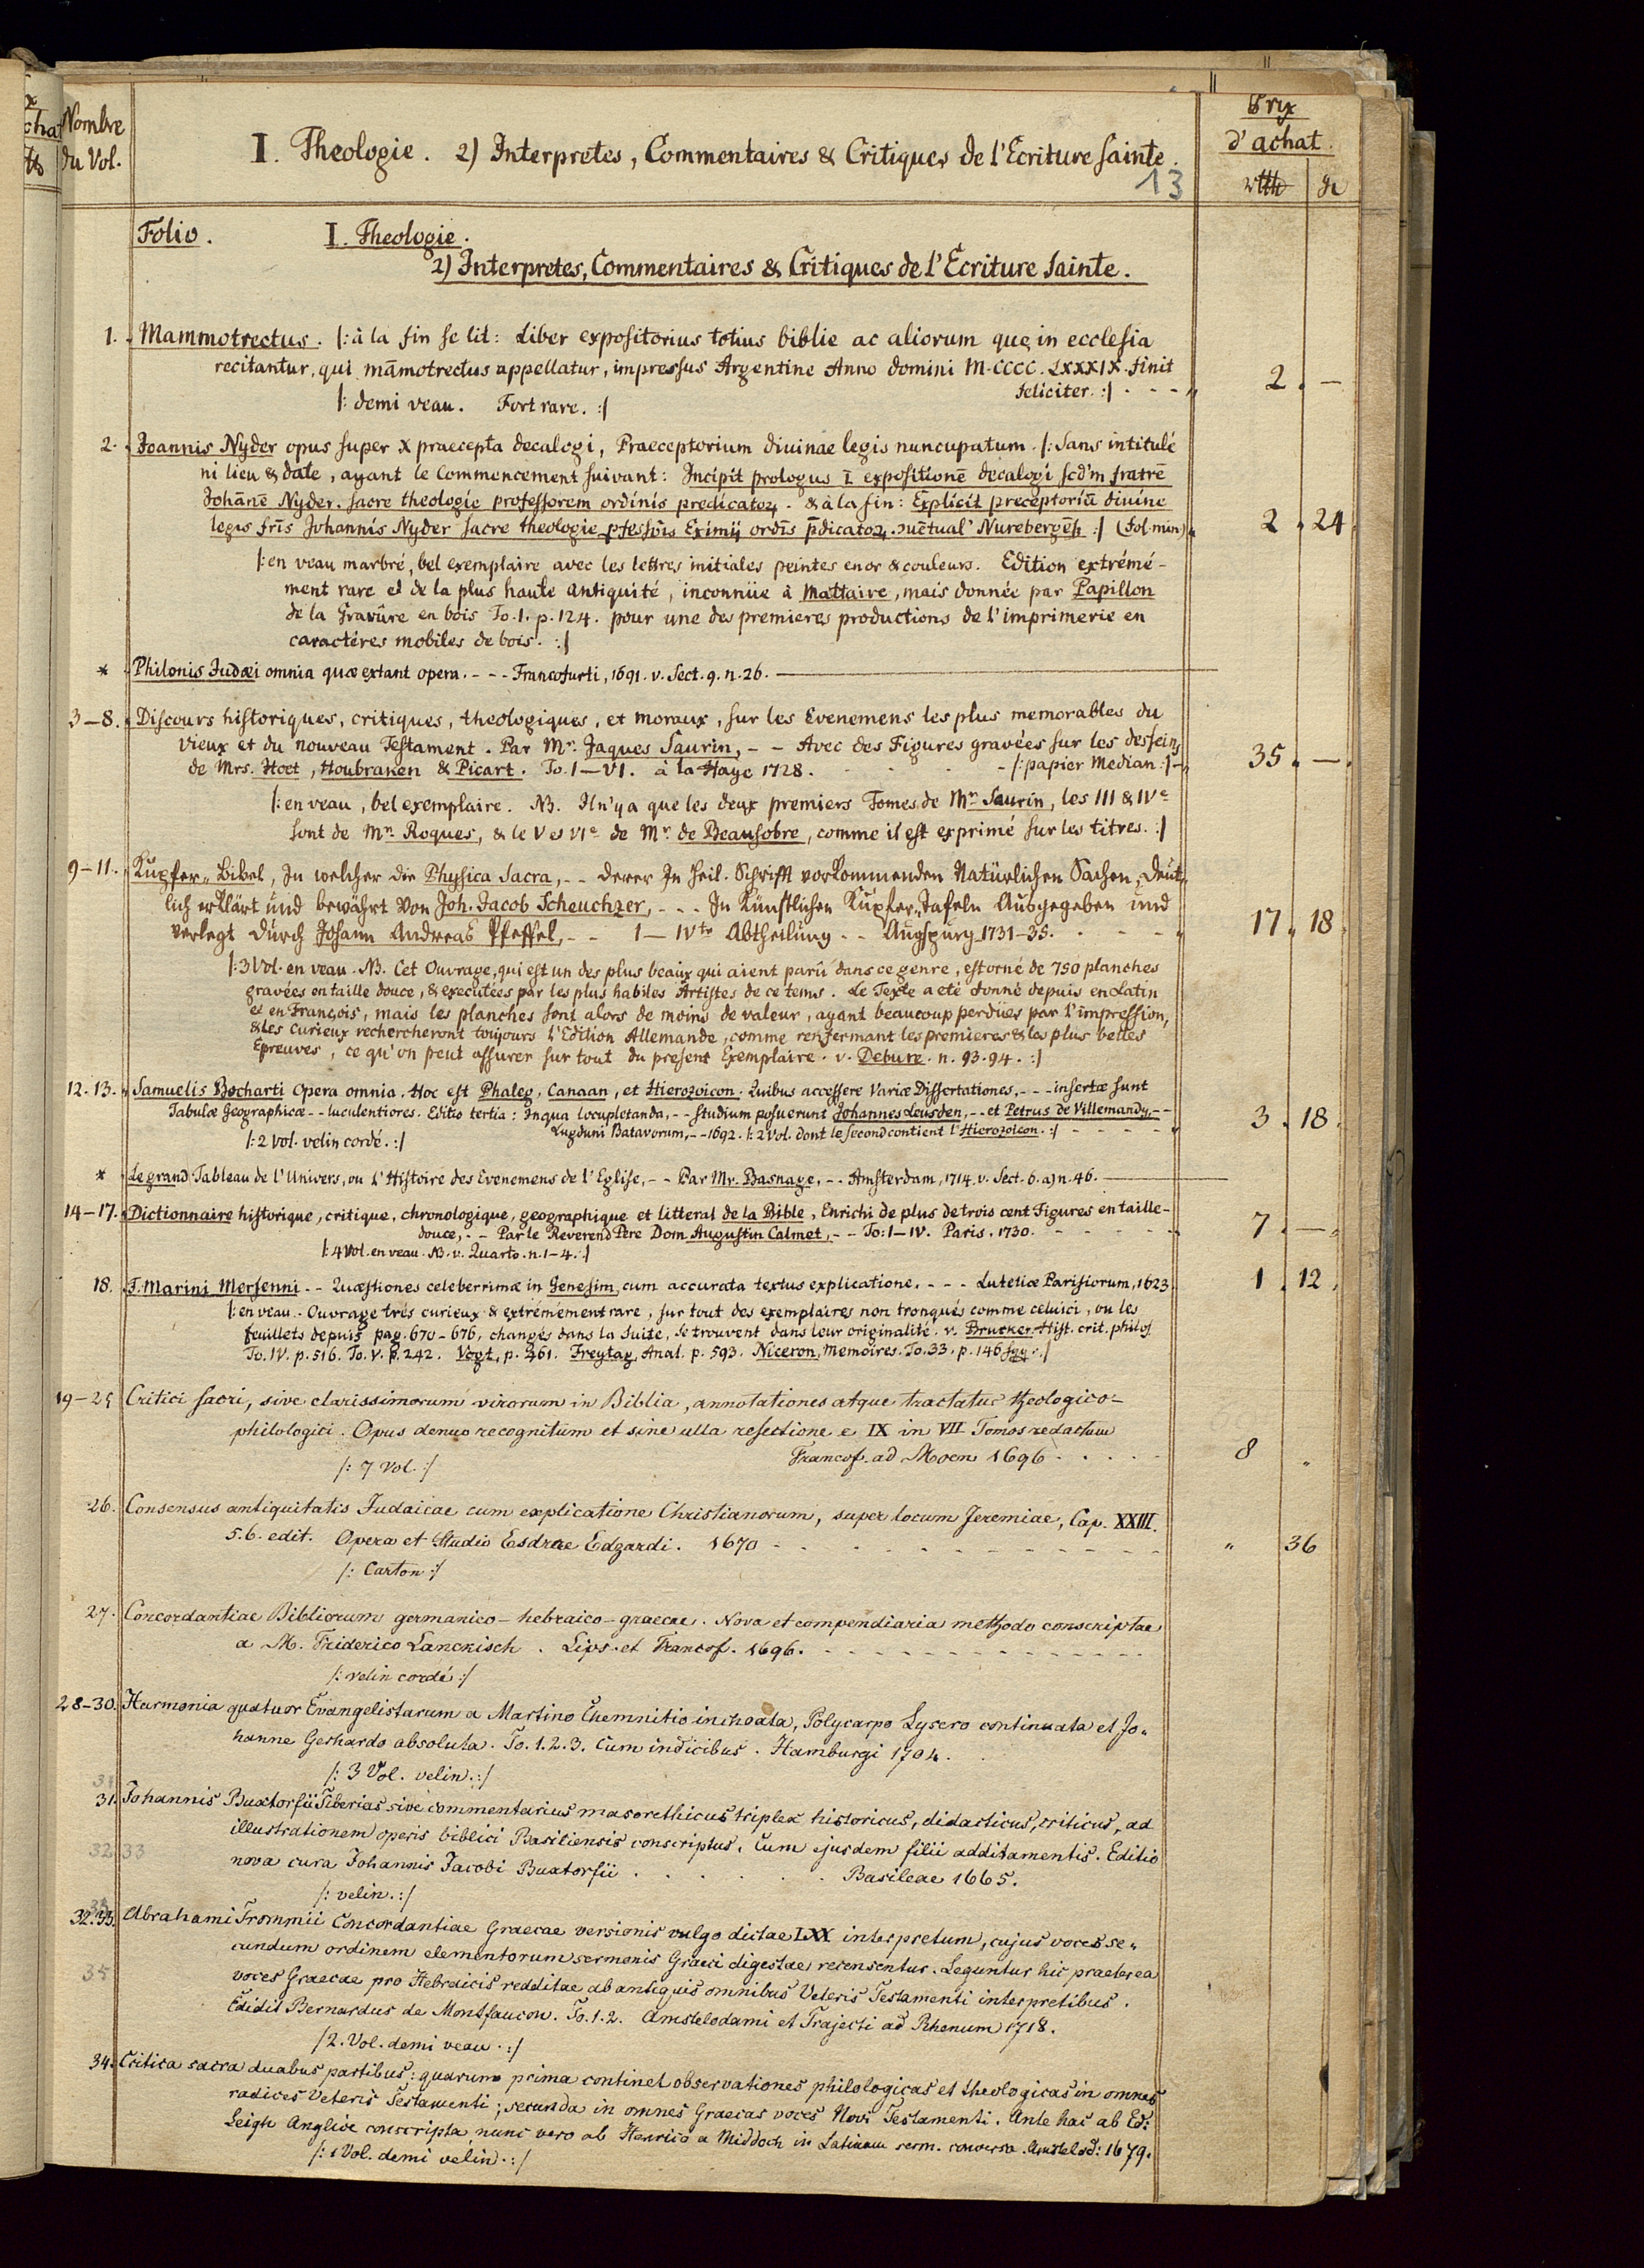 Nombre
du Vol.
I. Theologie. 2) Interpretes, Commentaires & Critiques de l'Ecriture Sainte.
13
Prix
d'achat.
Folio. I. Theologie.
2) Interpretes, Commentaires & Critiques de l'Ecriture Sainte.
1. Mammotrectus. /: à la fin se lit: Liber expositorius totius biblie ac aliorum que in ecclesia
recitantur, qui māmotrectus appellatur, impressus Argentine Anno domini M.CCCC.LXXXIX. finit
feliciter. :/ - - - 2. —
/: demi veau. Fort rare. :/
2. Joannis Nyder opus super X praecepta decalogi, Praeceptorium divinae legis nuncupatum. /: Sans intitulé
ni lieu & date, ayant le Commencement suivant: Incipit prologus I expositionē decalogi scd'm fratrē
Johānē Nyder. sacre theologie professorem ordinis predicatoꝝ. & à la fin: Explicit preceptoriū divine
legis frīs Johannis Nyder sacre theologie pfessoris Eximij ordīs p̄dicatoꝝ. nuētual' Nurebergēs :/ (Fol. min.) 2. 24.
/: en veau marbré, bel exemplaire avec les lettres initiales peintes en or & couleurs. Edition extrémé-
ment rare et de la plus haute antiquité, inconnüe à Mattaire, mais donnée par Papillon
de la Gravûre en bois To. 1. p. 124. pour une des premieres productions de l'imprimerie en
caractéres mobiles de bois. :/
* Philonis Judæi omnia quæ extant opera. - - - Francofurti, 1691. v. Sect. 9. n. 26.
3—8. Discours historiques, critiques, theologiques, et moraux, sur les Evenemens les plus memorables du
vieux et du nouveau Testament. Par Mr. Jaques Saurin, - - Avec des Figures gravées sur les desseins
de Mrs. Hoet, Houbraken & Picart. To. I—VI. à la Haye 1728. - /: papier Median :/ - 35. —.
/: en veau, bel exemplaire. NB. Il n'y a que les deux premiers Tomes de Mr. Saurin, les III & IVe
sont de Mr. Roques, & le V et VIe de Mr. de Beausobre, comme il est exprimé sur les titres. :/
9—11. Kupfer-Bibel, In welcher die Physica Sacra, - - derer In Heil. Schrifft vorkommenden Natürlichen Sachen, Deut-
lich erklärt und bewährt Von Joh. Jacob Scheuchzer, - - - In Künstlichen Kupfer-Tafeln Ausgegeben und
verlegt durch Johann Andreas Pfeffel, - - I—IVte Abtheilung - - Augspurg 1731—35. 17. 18.
/: 3 Vol. en veau. NB. Cet Ouvrage, qui est un des plus beaux qui aient parû dans ce genre, est orné de 750 planches
gravées en taille douce, & executées par les plus habiles Artistes de ce tems. Le Texte a eté donné depuis en Latin
et en François, mais les planches sont alors de moins de valeur, ayant beaucoup perdües par l'impression,
& les Curieux rechercheront toujours l'Edition Allemande, comme renfermant les premieres & les plus belles
Epreuves, ce qu'on peut assurer sur tout du present Exemplaire. v. Debure. n. 93. 94. :/
12. 13. Samuelis Bocharti Opera omnia. Hoc est Phaleg, Canaan, et Hierozoicon. Quibus accessere Variæ Dissertationes, - - - insertæ sunt
Tabulæ Geographicæ - - luculentiores. Editio tertia: In qua locupletanda, - - studium posuerunt Johannes Leusden, - - et Petrus de Villemandy, - -
Lugduni Batavorum, - - 1692. /: 2 Vol. dont le second contient l'Hierozoicon. :/ 3. 18.
/: 2 Vol. velin cordé. :/
* Le grand Tableau de l'Univers, ou l'Histoire des Evenemens de l'Eglise, - - Par Mr. Basnage, - - Amsterdam, 1714. v. Sect. 6. a) n. 46.
14—17. Dictionnaire historique, critique, chronologique, geographique et litteral de la Bible, Enrichi de plus de trois cent Figures en taille-
douce, - - Par le Reverend Pére Dom Augustin Calmet, - - To: I—IV. Paris, 1730. 7. —.
/: 4 Vol. en veau. NB. v. Quarto. n. 1—4. :/
18. F. Marini Mersenni - - Quæstiones celeberrimæ in Genesim, cum accurata textus explicatione. - - - Lutetiæ Parisiorum, 1623. 1. 12.
/: en veau. Ouvrage trés curieux & extrémement rare, sur tout des exemplaires non tronqués comme celuici, ou les
feuillets depuis pag. 670—676, changés dans la suite, se trouvent dans leur originalité. v. Brucker Hist. crit. philos.
To. IV. p. 516. To. V. p. 242. Vogt, p. 461. Freytag, Anal. p. 593. Niceron, Memoires. To. 33. p. 146 sqq. :/
19—25 Critici sacri, sive clarissimorum virorum in Biblia, annotationes atque tractatus theologico-
philologici. Opus denuo recognitum et sine ulla resectione e IX in VII Tomos redactum
/: 7 Vol. :/ Francof. ad Moen 1696 8 "
26. Consensus antiquitatis Judaicae cum explicatione Christianorum, super locum Jeremiae, Cap. XXIII.
5. 6. edit. Opera et Studio Esdrae Edzardi. 1670 " 36
/: Carton :/
27. Concordantiae Bibliorum germanico-hebraico-graecae. Nova et compendiaria methodo conscriptae
a M. Friderico Lanckisch. Lips. et Francof. 1696.
/: velin cordé :/
28—30. Harmonia quatuor Evangelistarum a Martino Chemnitio inchoata, Polycarpo Lysero continuata et Jo-
hanne Gerhardo absoluta. To. 1. 2. 3. Cum indicibus. Hamburgi 1704.
/: 3 Vol. velin. :/
31. Johannis Buxtorfii Tiberias sive commentarius masorethicus triplex historicus, didacticus, criticus, ad
illustrationem operis biblici Basiliensis conscriptus, Cum ejusdem filii additamentis. Editio
32 33
nova cura Johannis Jacobi Buxtorfii Basileae 1665.
/: velin. :/
32. 33. Abrahami Trommii Concordantiae Graecae versionis vulgo dictae LXX interpretum, cujus voces se-
cundum ordinem elementorum sermonis Graeci digestae recensentur. Leguntur hic praeterea
35
voces Graecae pro Hebraicis redditae ab antiquis omnibus Veteris Testamenti interpretibus.
Edidit Bernardus de Montfaucon. To. 1. 2. Amstelodami et Trajecti ad Rhenum 1718.
/ 2. Vol. demi veau. :/
34. Critica sacra duabus partibus: quarum prima continet observationes philologicas et theologicas in omnes
radices Veteris Testamenti; secunda in omnes Graecas voces Novi Testamenti. Ante hac ab Ed:
Leigh Anglice conscripta nunc vero ab Henrico a Middoch in Latinum serm. conversa. Amstelod: 1679.
/: 1 Vol. demi velin. :/